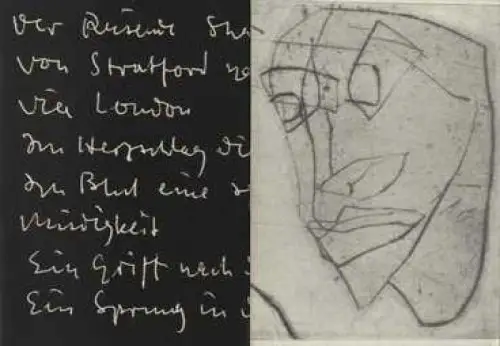 Der Reisende Sha
von Stratford na
via London
Im Herzschlag di
Im Blut eine
Müdigkeit
Ein Griff nach
Ein Sprung in